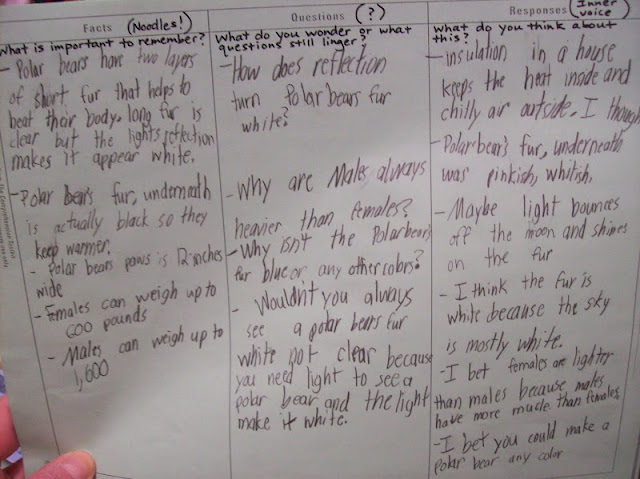 Facts (Noodles!)
What is important to remember?
- Polar bears have two layers
of short fur that helps to
heat their body. long fur is
clear but the lights reflection
makes it appear white.
- Polar bears fur, underneath
is actually black so they
keep warmer.
- Polar bears paws is 12 inches
wide
- Females can weigh up to
600 pounds
- Males can weigh up to
1,600
Questions (?)
What do you wonder or what
questions still linger?
- How does reflection
turn Polar bears fur
white?
- Why are Males always
heavier than females?
- Why isn't the Polar bears
fur blue or any other colors?
- Wouldn't you always
see a polar bears fur
white not clear because
you need light to see a
polar bear and the light
make it white.
Responses (Inner voice)
What do you think about
this?
- insulation in a house
keeps the heat inside and
chilly air outside. I though
- Polar bear's fur, underneath
was pinkish, whitish.
- Maybe light bounces
off the moon and shines
on the fur
- I think the fur is
white because the sky
is mostly white.
- I bet females are lighter
than males because males
have more muscle than females
- I bet you could make a
polar bear any color